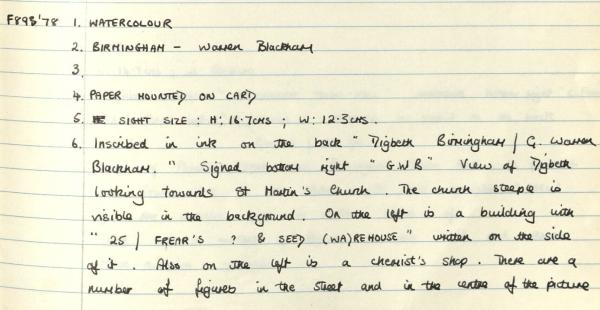 F898'78 1. WATERCOLOUR
2. BIRMINGHAM - Warren Blackham
3.
4. PAPER MOUNTED ON CARD
5. SIGHT SIZE : H: 16.7cms ; W: 12.3cms.
6. Inscribed in ink on the back " Digbeth Birmingham / G. Warren
Blackham. " Signed bottom right " G.W B " View of Digbeth
looking towards St Martin's Church. The church steeple is
visible in the background. On the left is a building with
" 25 / FREAR'S ? & SEED (WA)REHOUSE " written on the side
of it. Also on the left is a chemist's shop. There are a
number of figures in the street and in the centre of the picture